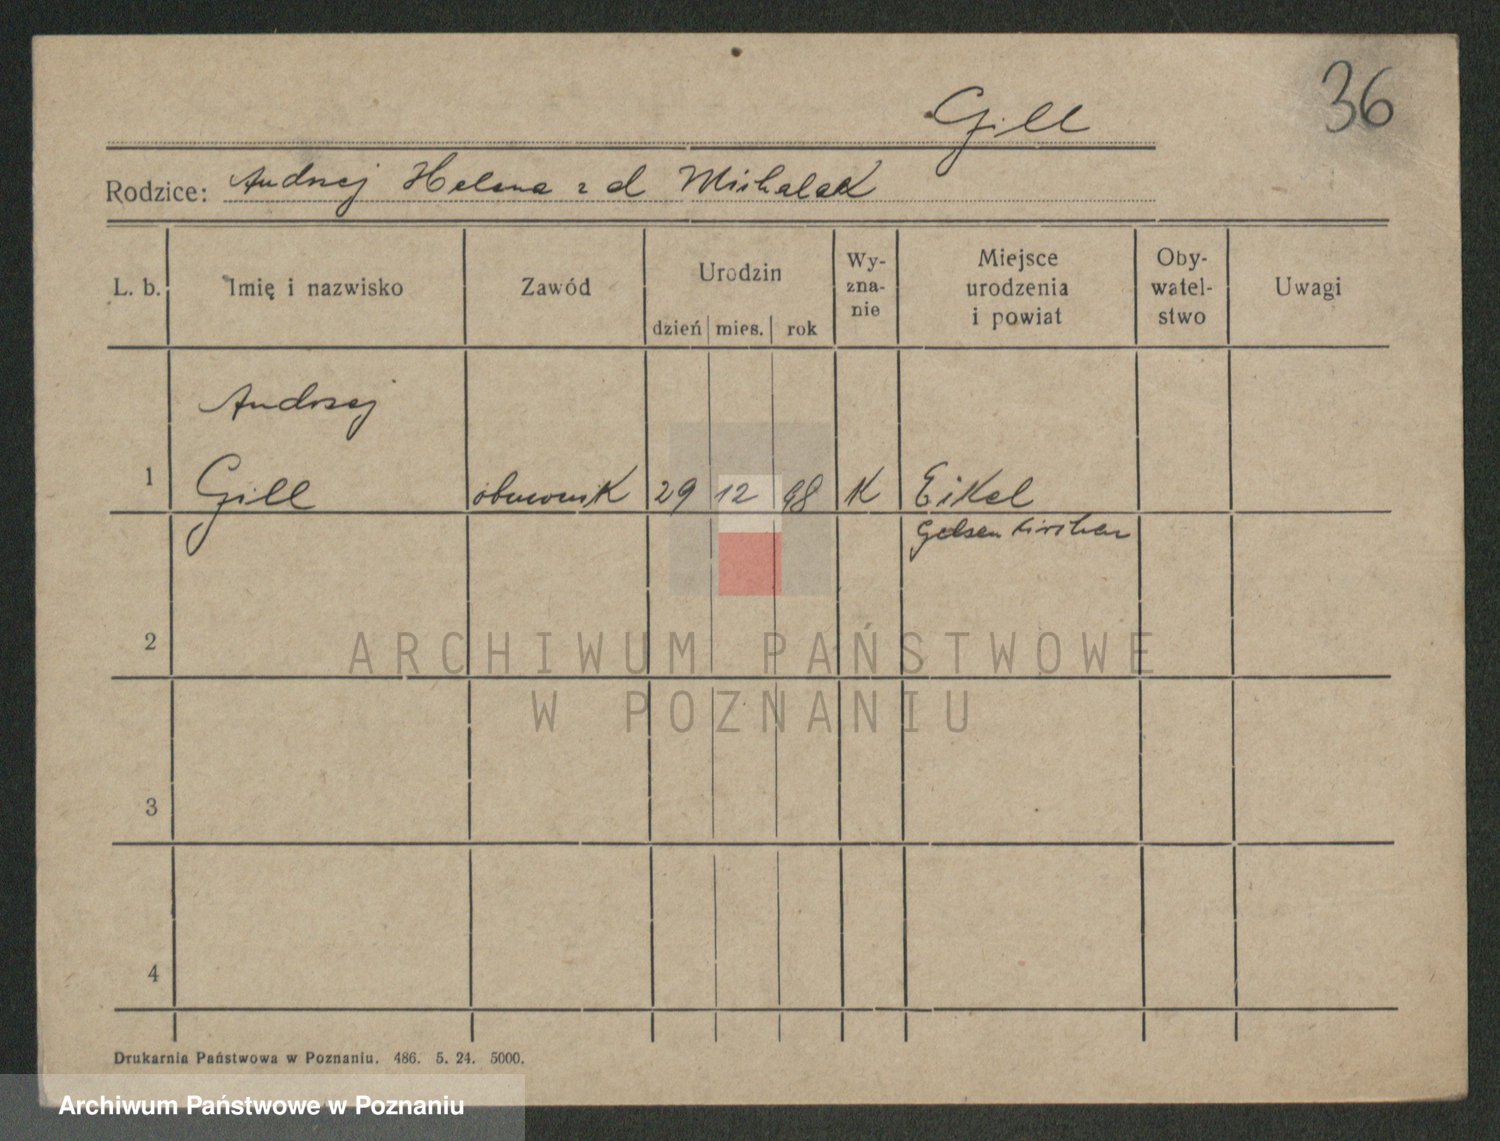 36
Gill
Rodzice: Andrzej Helena z d Michalak
L. b. Imię i nazwisko Zawód Urodzin dzień mies. rok Wy-zna-nie Miejsce urodzenia i powiat Oby-watel-stwo Uwagi
Andrzej
1 Gill 29 12 98 K Eikel
Gelsenkirchen
2
ARCHIWUM PAŃSTWOWE
W POZNANIU
3
4
Drukarnia Państwowa w Poznaniu. 486. 5. 24. 5000.
Archiwum Państwowe w Poznaniu